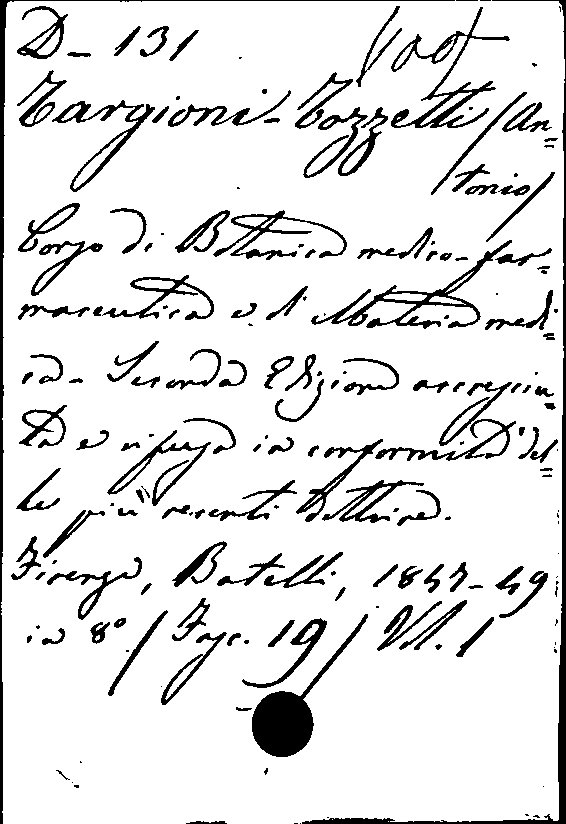 D - 131
Targioni-Tozzetti (An=
tonio)
Corso di Botanica medico-far=
maceutica e di Materia medi=
ca - Seconda Edizione accresciu=
ta e rifusa in conformità del=
le più recenti dottrine.
Firenze, Batelli, 1847-49
in 8° (Fasc. 19) Vol. 1